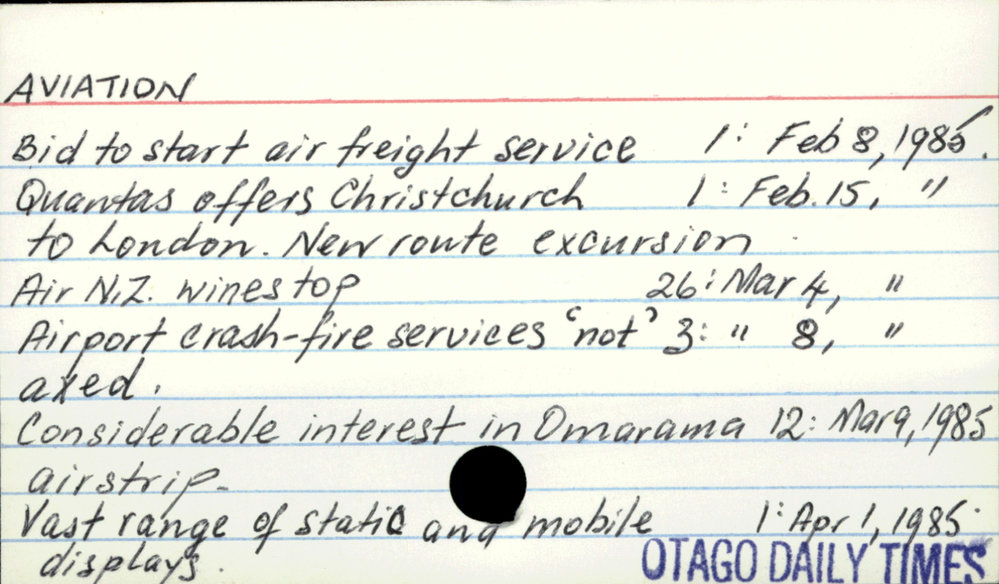 AVIATION
Bid to start air freight service 1: Feb 8, 1985.
Quantas offers Christchurch 1: Feb. 15, "
to London. New route excursion.
Air N.Z. wines top 26: Mar 4, "
Airport crash-fire services 'not' 3: " 8, "
axed.
Considerable interest in Omarama 12: Mar 9, 1985
airstrip-
Vast range of static and mobile 1: Apr 1, 1985.
displays.
OTAGO DAILY TIMES